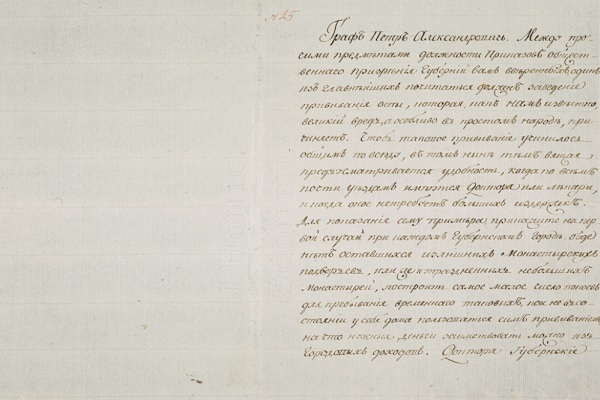 № 25
Графъ Петръ Александровичь. Между про-
чими предмѣтами должности Приказовъ обществ-
веннаго призрѣнія Губерній вамъ ввѣренныхъ, одинъ
изъ главнѣйшихъ почитаться долженъ заведеніе
прививанія оспы, которая, какъ намъ извѣстно,
великій вредъ, а особливо въ простомъ народѣ, при-
чиняетъ. Чтобъ таковое прививаніе учинилось
общимъ повсюду, въ томъ нынѣ тѣмъ вящая
предусматривается удобность, когда по всѣмъ
почти уѣздамъ имѣются Доктора или лѣкари,
и когда оное не требуетъ большихъ издержекъ.
Для показанія сему примѣра, прикажите на пер-
вой случай при каждомъ Губернскомъ Городѣ, буде
нѣтъ оставшихся излишнихъ Монастырскихъ
подворьевъ, или упраздненныхъ небольшихъ
Монастырей, построить самое малое число покоевъ
для пребыванія временнаго таковыхъ, кои не въ со-
стояніи у себя дома пользоваться симъ прививаніемъ
на что нужныя деньги заимствовать можно изъ
Городскихъ доходовъ. Доктора Губернскіе